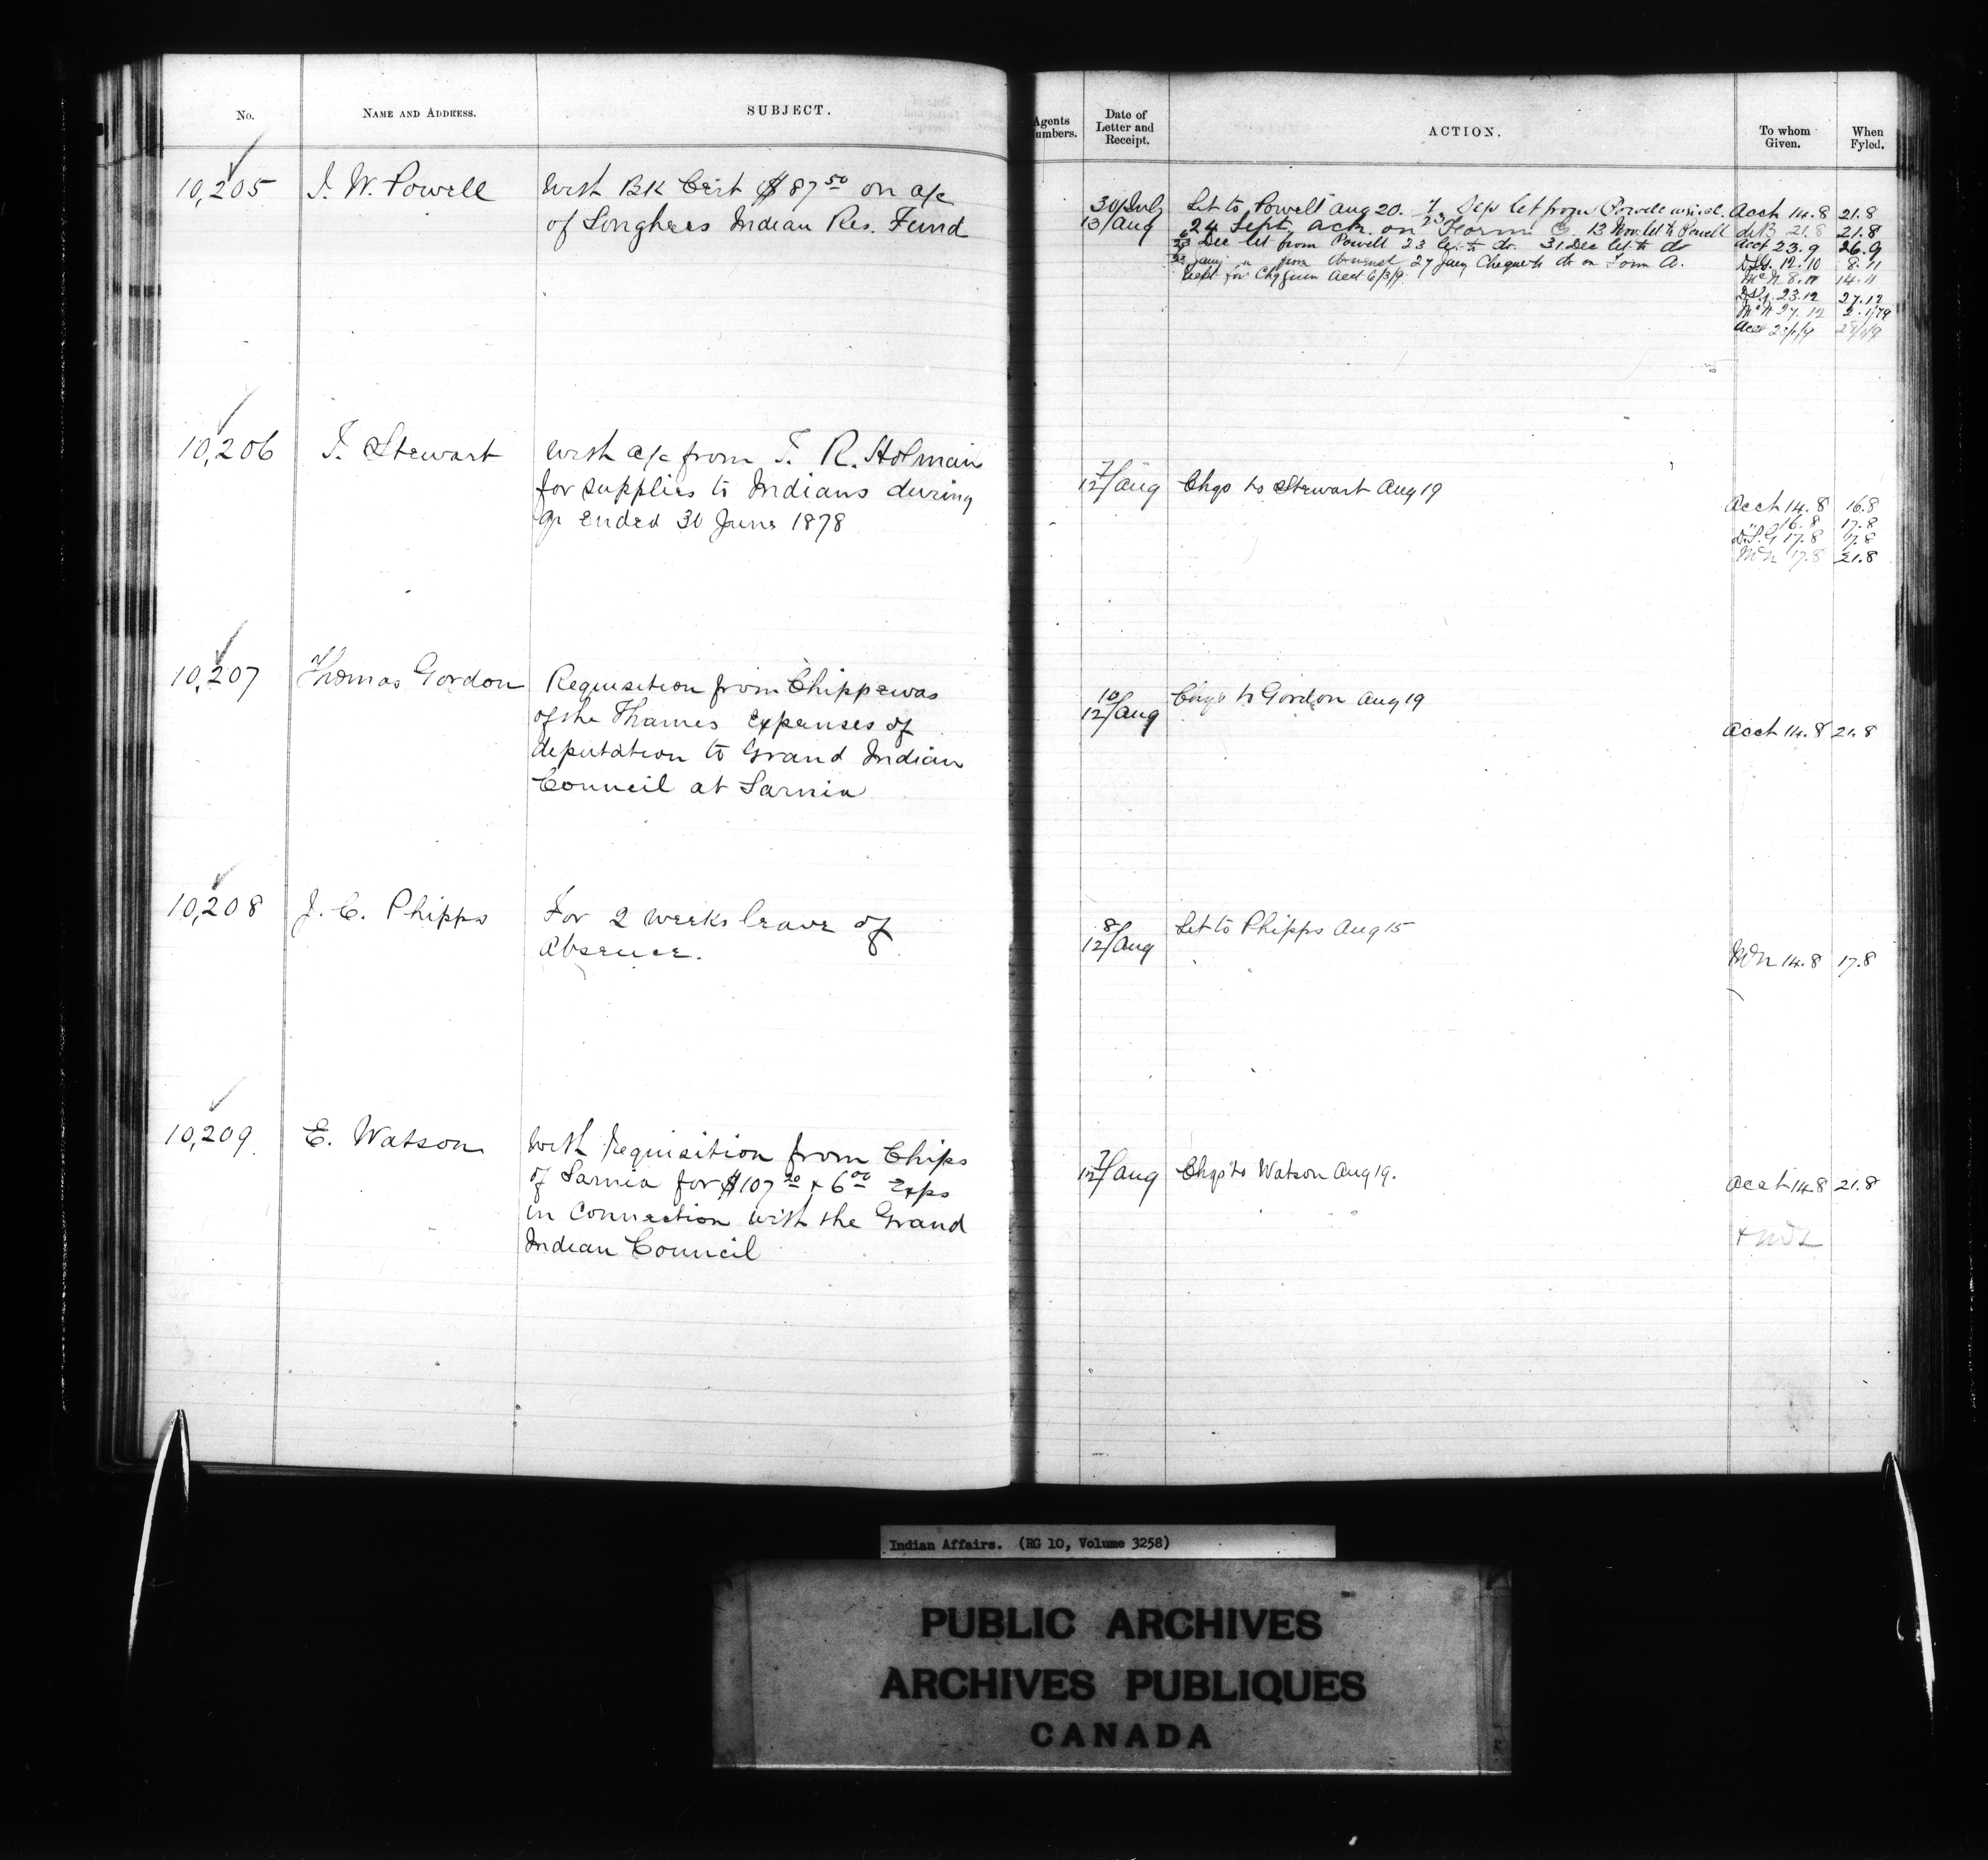 No.
NAME AND ADDRESS.
SUBJECT.
Agents
umbers.
Date of
Letter and
Receipt.
ACTION.
To whom
Given.
When
Fyled.
10,205
I. W. Powell
With BK Cert $87 50 on a/c
of Songhees Indian Res. Fund
30/July
13/Aug
Let to Powell Aug 20. 7 Sep let from Powell
24 Sept ack. on Form C. 13 Nov. let to Powell
23 Dec let from Powell 23 let to do. 31 Dec let to do
27 Jany Cheque to do on Form A.
Acct 14.8 21.8
21.8 21.8
Acct 23.9 26.9
12.10 8.11
McN 8.11 14.11
23.12 27.12
McN 27.12 2.1/79
Acct
10,206
I. Stewart
With a/c from T. R. Holman
for supplies to Indians during
qr ended 30 June 1878
7/
12/Aug
Chqs to Stewart Aug 19
Acct 14.8 16.8
" 16.8 17.8
D.S.G 17.8 17.8
McN 17.8 21.8
10,207
Thomas Gordon
Requisition from Chippewas
of the Thames Expenses of
deputation to Grand Indian
Council at Sarnia
10/
12/Aug
Chqs to Gordon Aug 19
Acct 14.8 21.8
10,208
J. C. Phipps
For 2 weeks leave of
Absence.
8/
12/Aug
Let to Phipps Aug 15
McN 14.8 17.8
10,209
E. Watson
With Requisition from Chips
of Sarnia for $107 20 + 6 00 Exps
in Connection with the Grand
Indian Council
7/
12/Aug
Chqs to Watson Aug 19.
Acct 14.8 21.8
Indian Affairs. (RG 10, Volume 3258)
PUBLIC ARCHIVES
ARCHIVES PUBLIQUES
CANADA